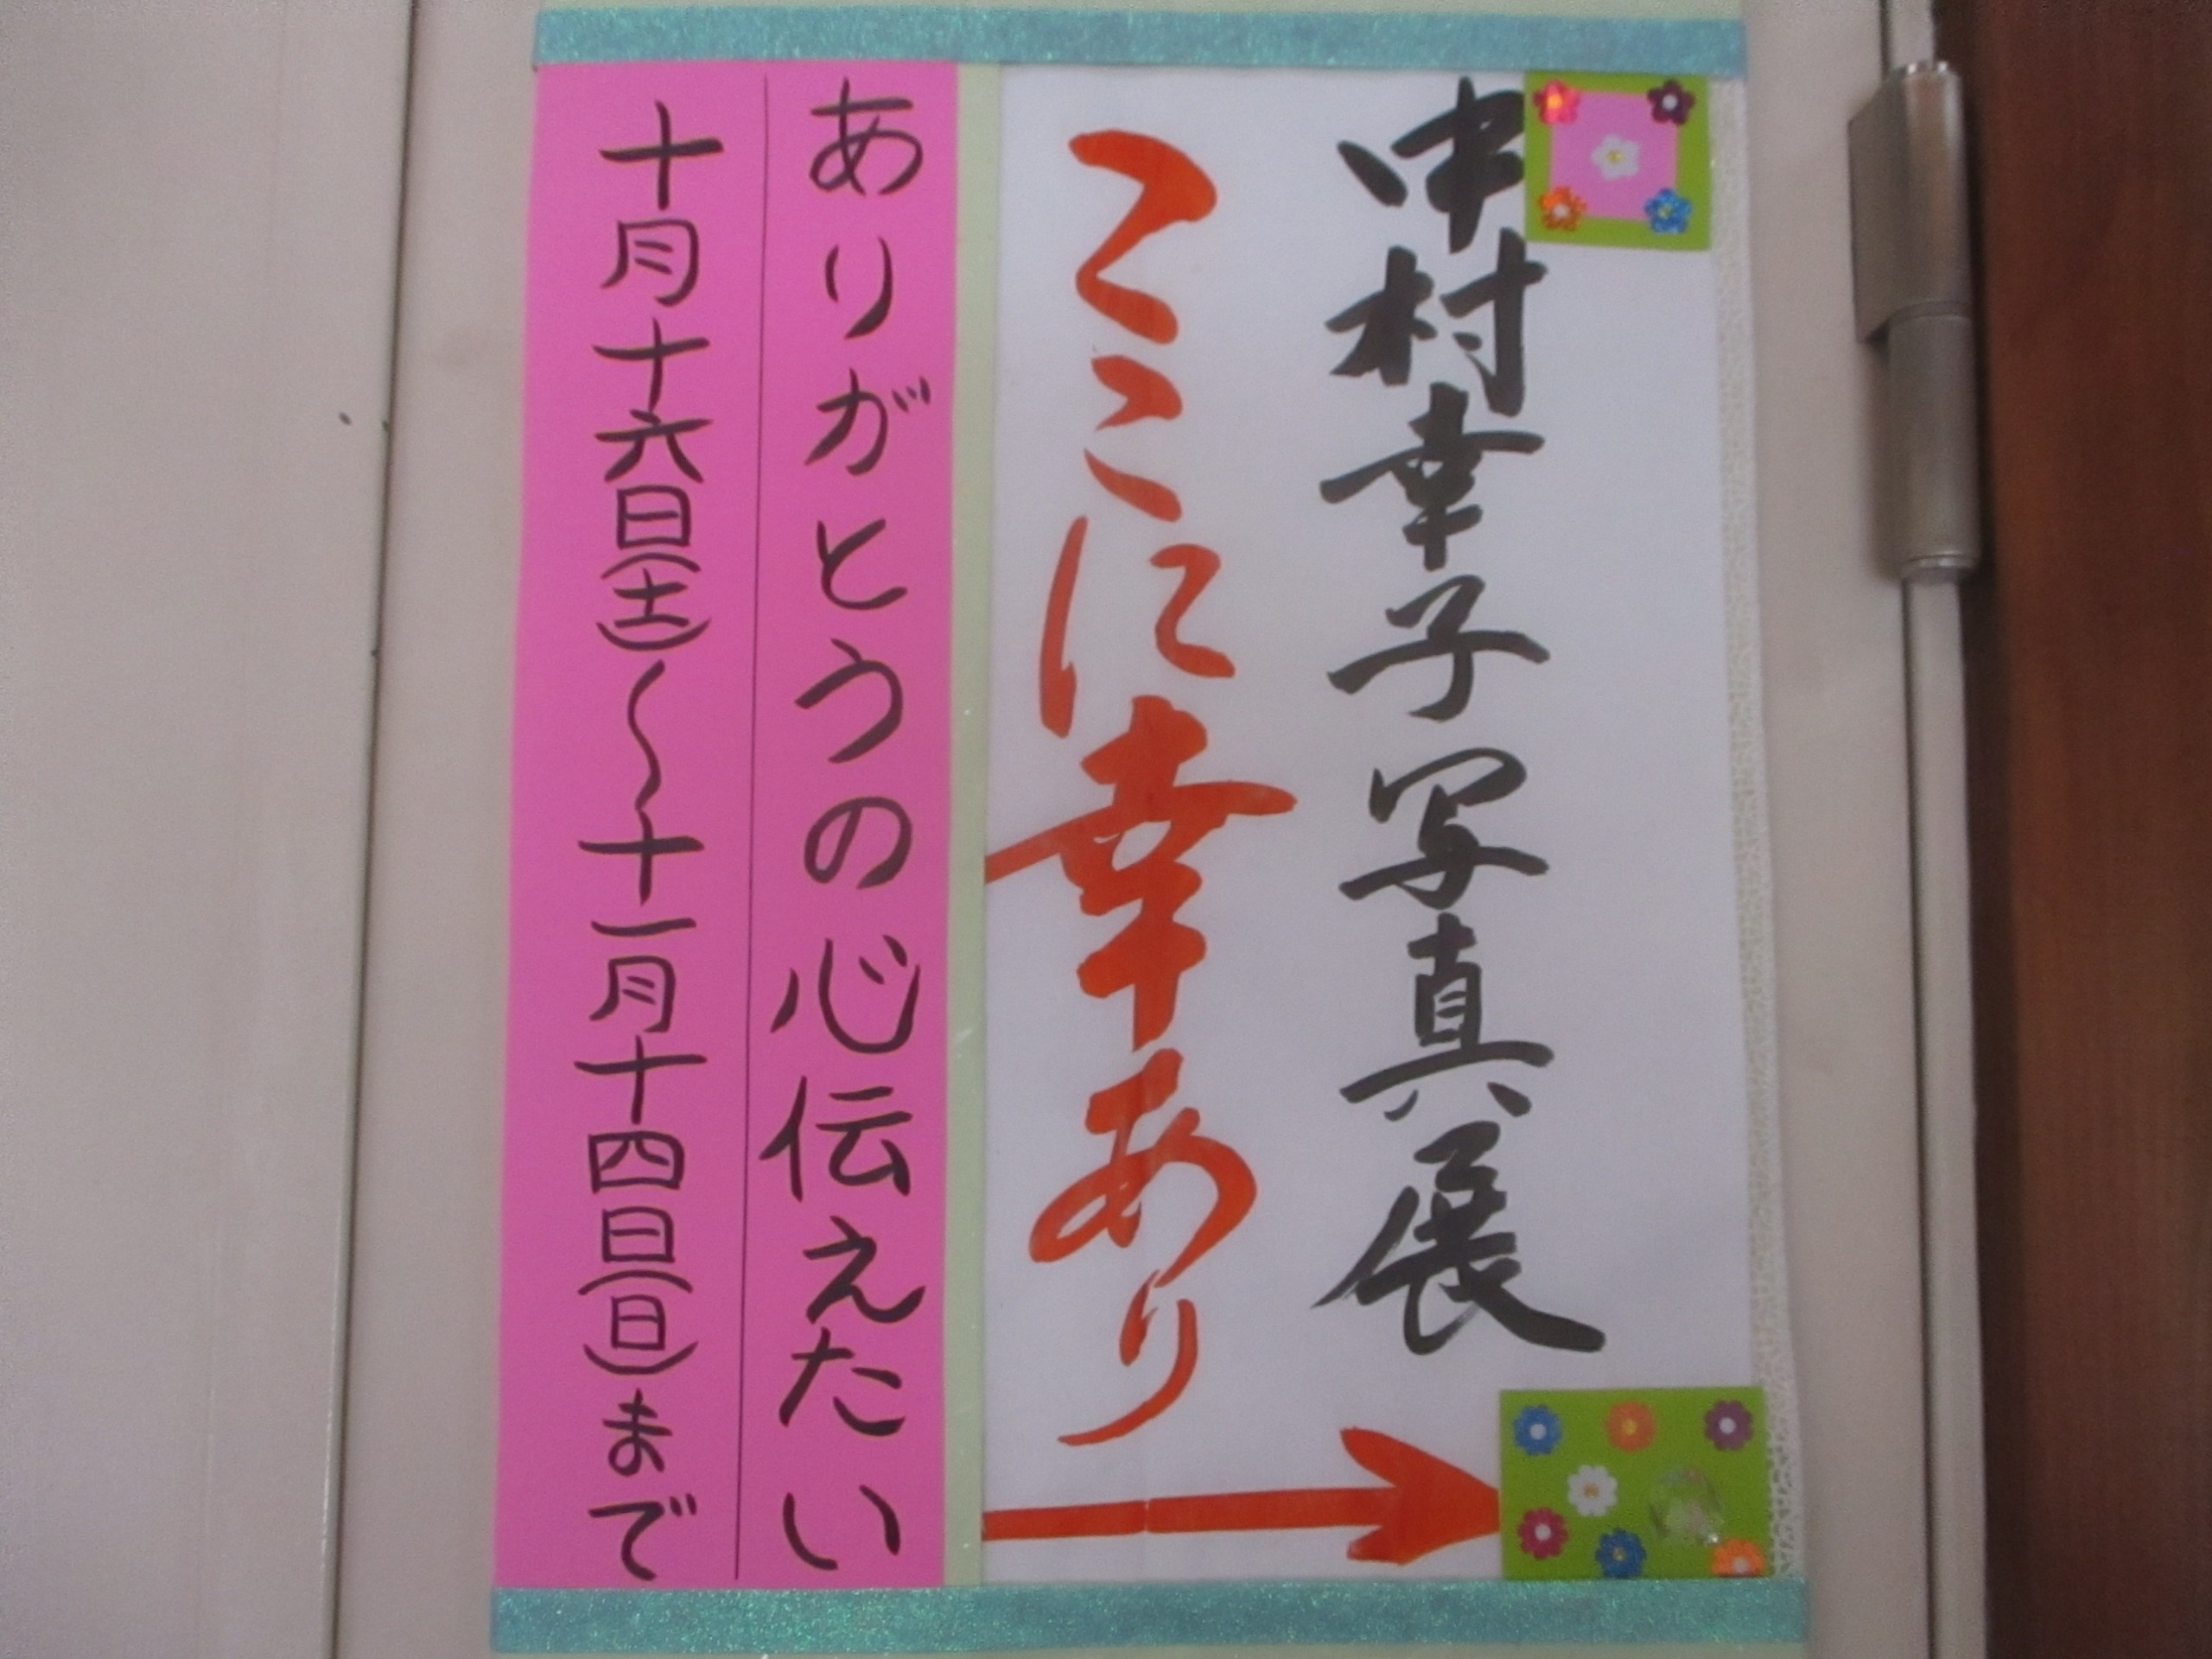 中村幸子写真展
ここに幸あり
ありがとうの心伝えたい
十月十六日(土)〜十一月十四日(日)まで